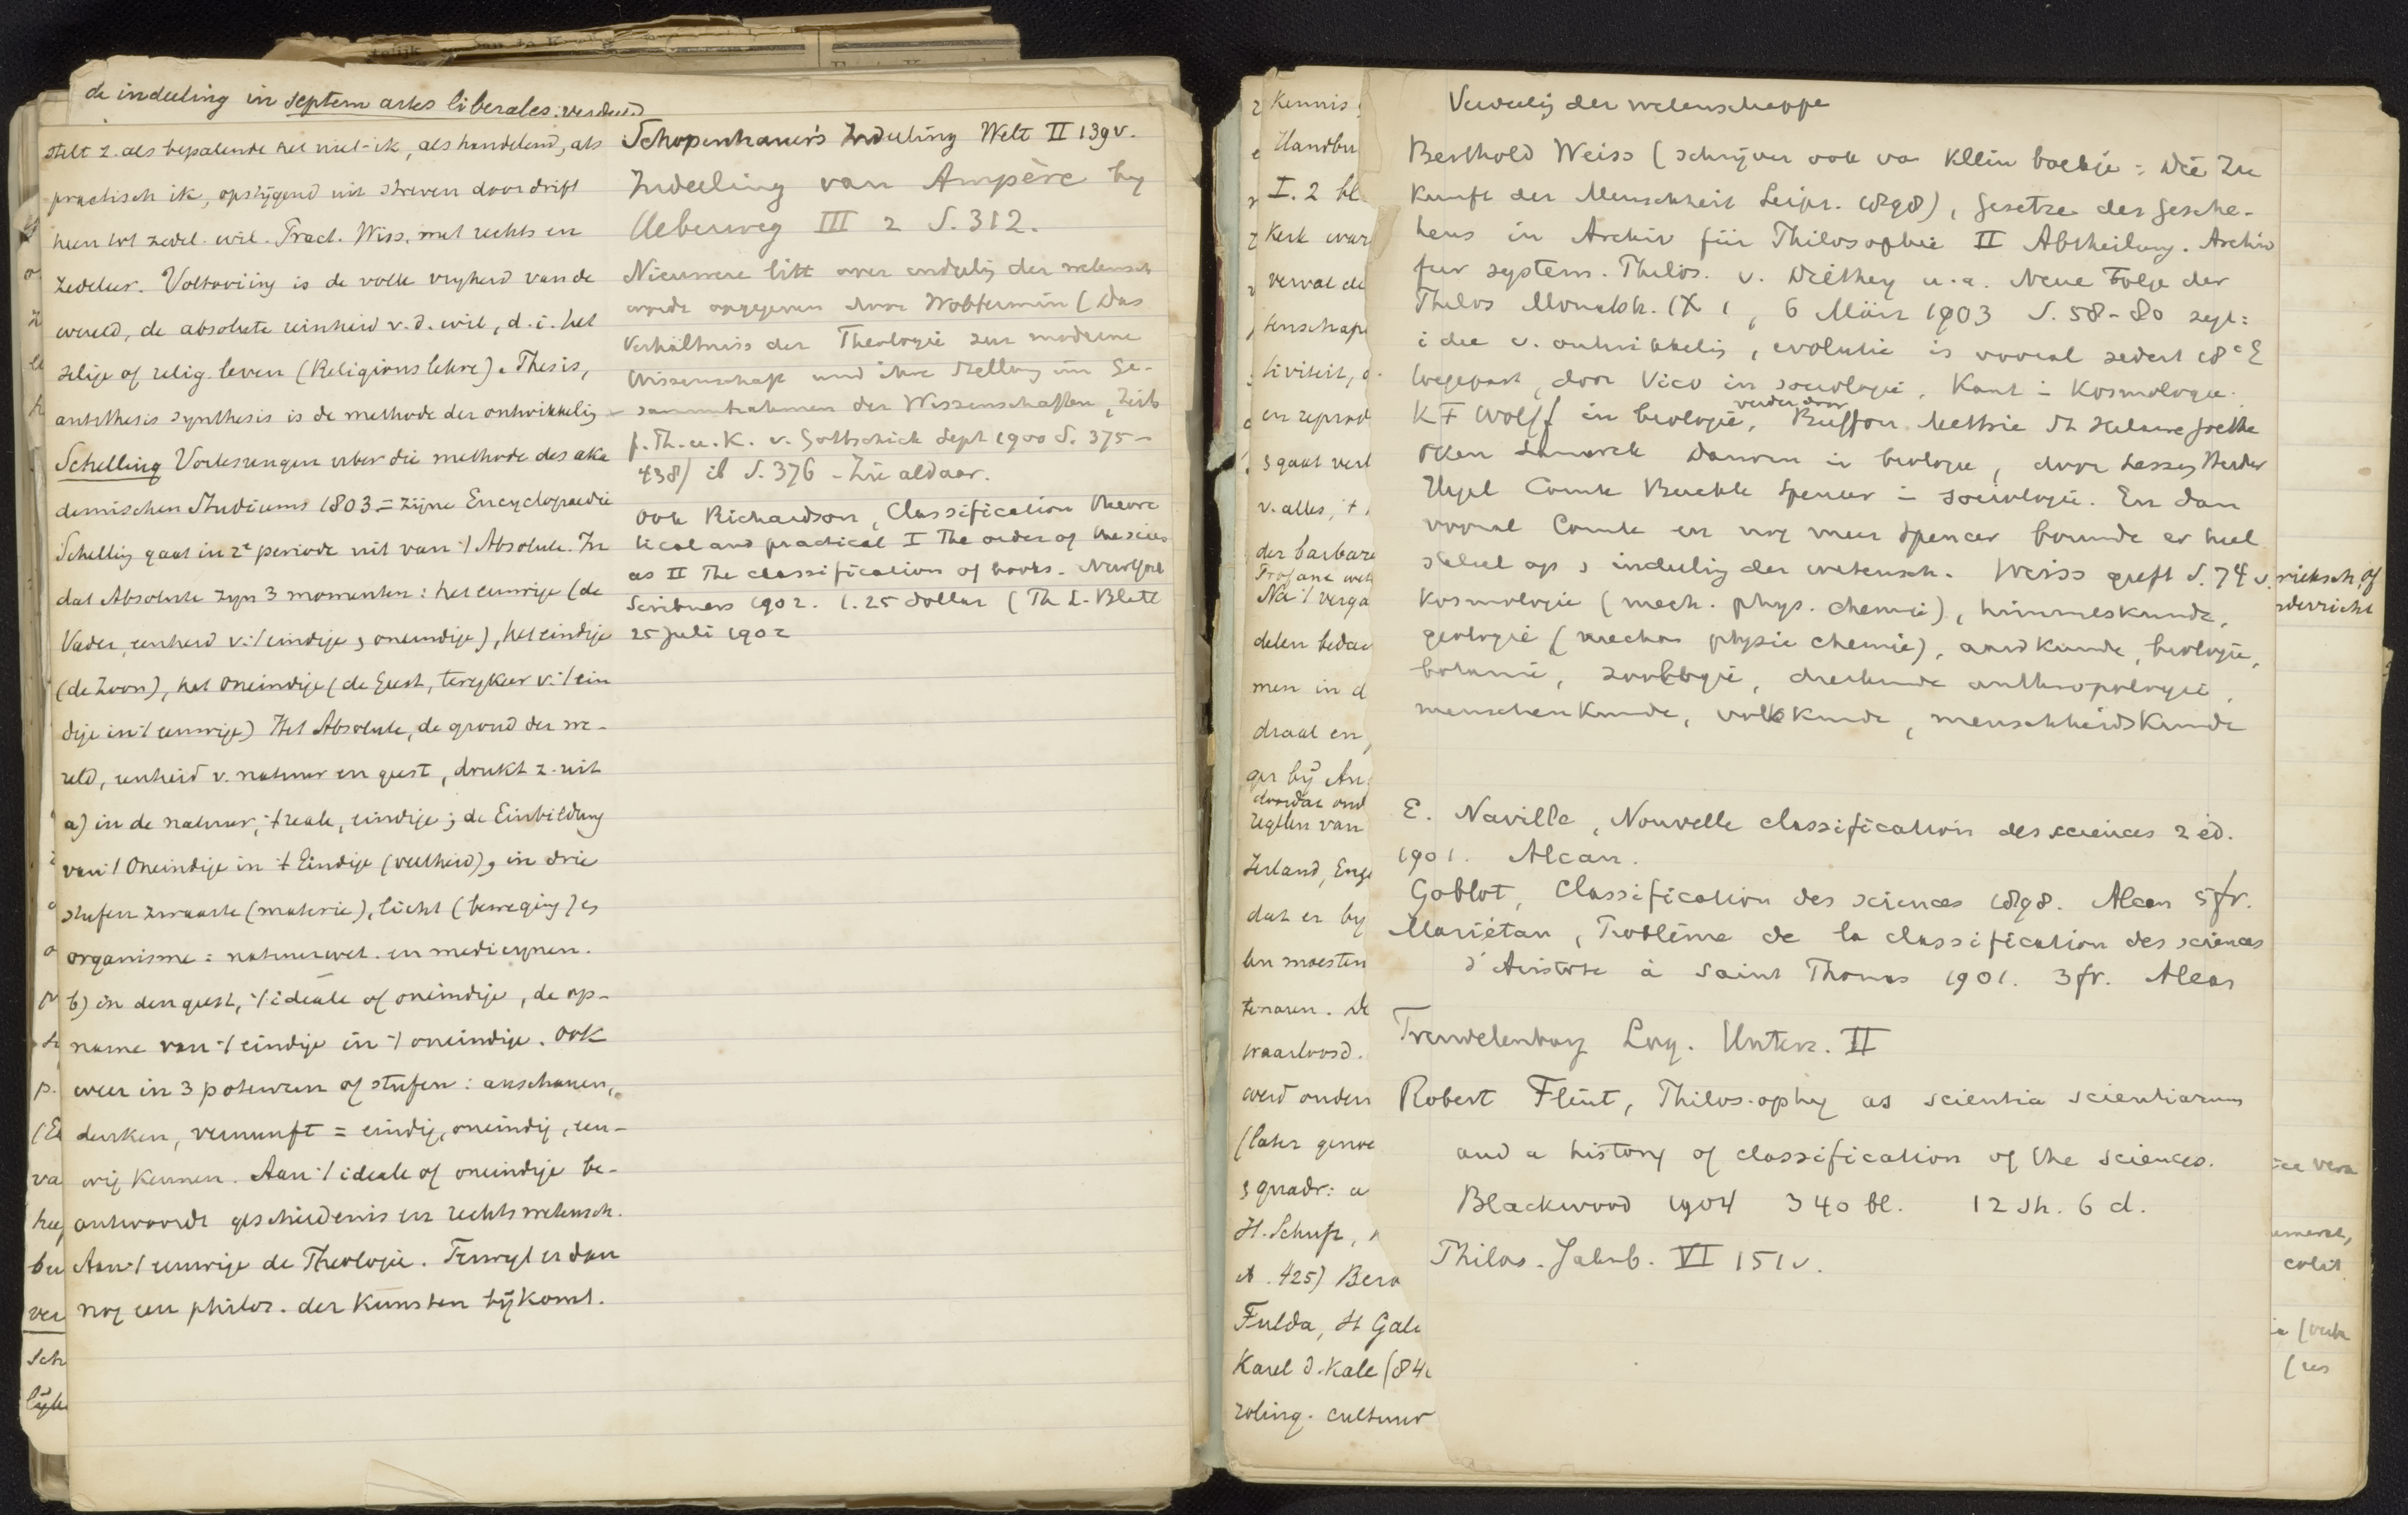 de indeeling in septem artes liberales.
stelt z. als bepalende het niet-ik, als handelend, als
practisch ik, opstijgend uit streven door drift
heen tot zedel. wil. Pract. Wiss. met rechts en
zedeleer. Voltooiing is de volle vryheid van de
wereld, de absolute einheid v. d. wil, d. i. het
zelige of relig. leven (Religionslehre). Thesis,
antithesis synthesis is de methode der ontwikkelig
Schelling Vorlesungen uber die methode des aka
demischen Studiums 1803 = zijne Encyclopaedie
Schellig gaat in 2e periode uit van 't Absolute. In
dat Absolute zyn 3 momenten: het eeuwige (de
Vader, eenheid v. 't eindige en oneindige), het eindige
(de Zoon), het oneindige (de Geest, terugkeer v. 't ein
dige in 't eeuwige) Het Absolute, de grond der we-
reld, eenheid v. natuur en geest, drukt z. uit
a) in de natuur, 't reale, eindige; de Einbildung
van 't Oneindige in 't Eindige (veelheid), in drie
stufen zwaarte (materie), licht (beweging) en
organisme = natuurwet. en medicynen.
b) in den geest, 't ideale of oneindige, de op-
name van 't eindige in 't oneindige. Ook
weer in 3 potenzen of stufen: anschauen,
denken, vernunft = eindig, oneindig, eeu-
wig kennen. Aan 't ideale of oneindige be-
antwoordt geschiedenis en rechtswetensch.
Aan 't eeuwige de Theologie. Terwyl er dan
nog een philos. der Kunsten bijkomt.
Schopenhauer's Indeeling Welt II 139v.
Indeeling van Ampère by
Ueberweg III 2 S. 312.
Nieuwere litt over indeelig der wetensch
wordt opgegeven door Wobbermin (Das
Verhältniss der Theologie zur moderne
Wissenschaft und ihre Stellung im Ge-
sammtrahmen der Wissenschaften, Zeits
f. Th. u. K. v. Gottschick Sept 1900 S. 375-
438) ib S. 376 - Zie aldaar.
Ook Richardson, Classification theore
tical and practical I The order of the scien
as II The classification of books. New York
Scribners 1902. 1.25 dollar (Th L. Blatt
25 Juli 1902
Kennis
Handbu
I. 2 bl
Kerk war
verval de
tenschap
tiviteit,
en reprod
gaat verl
v. alles, 't
der barbare
Profane wet
Na 't verga
delen bedac
men in d
draal en
ger bÿ An
doordat ond
regelen van
Ierland, Enge
dat er by
len moesten
tenaren. De
waarloosd.
werd onder
(later genoe
quadr: a
H. Schup,
425) Bero
Fulda, St Gale
Karel d. Kale (84
roling. cultuur
Verdeelig der wetenschappe
Berthold Weiss (schrijver ook va klein boekje: Die Zu
kunft der Menschheit Leipz. 1898), Gesetze des Gesche-
hens in Archiv für Philosophie II Abtheilung. Archiv
fur system. Philos. v. Dilthey u. a. Neue Folge der
Philos Monatsh. IX 1, 6 März 1903 S. 58-80 zegt:
idee v. ontwikkelig, evolutie is vooral sedert 18e E
toegepast, door Vico in sociologie, Kant in Kosmologie.
verder door
K F Wolff in biologie, Buffon Mettrie St Hilaire Goethe
Oken Lamarck Darwin in biologie, door Lessing Herder
Hegel Comte Buckle Spencer in sociologie. En dan
vooral Comte en nog meer Spencer bouwde er heel
stelsel op en indeelig der wetensch. Weiss geeft S. 74 v.
Kosmologie (mech. phys. chemie), himmelskunde,
geologie (mechan physic chemie), aardkunde, biologie,
botanie, zoologie, dierkunde anthropologie,
menschenkunde, volkkunde, menschheidskunde
E. Naville, Nouvelle classification des sciences 2 éd.
1901. Alcan.
Goblot, Classification des sciences 1898. Alcan 5 fr.
Mariétan, Problème de la classification des sciences
d'Aristote à Saint Thomas 1901. 3 fr. Alcan
Trendelenburg Log. Unters. II
Robert Flint, Philosophy as scientia scientiarum
and a history of classification of the sciences.
Blackwood 1904 340 bl. 12 sh. 6 d.
Philos. Jahrb. VI 151 v.